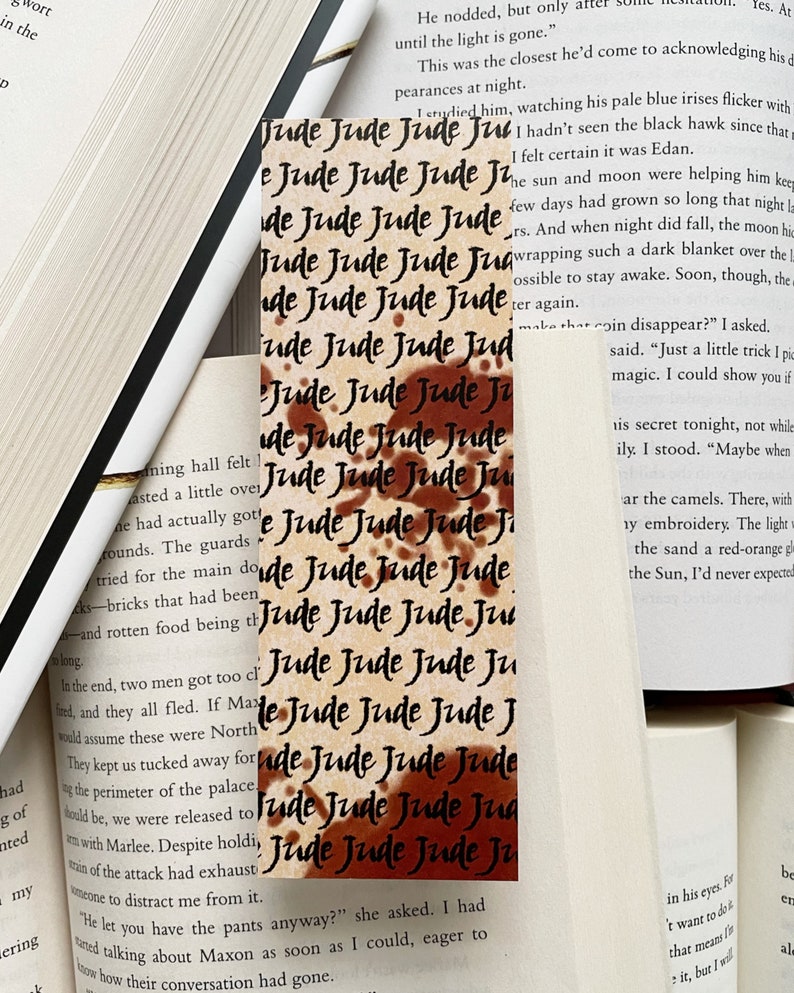 gwort
in the
He nodded, but only after some hesitation. "Yes. At
until the light is gone."
This was the closest he'd come to acknowledging his d
pearances at night.
I studied him, watching his pale blue irises flicker with
I hadn't seen the black hawk since that
I felt certain it was Edan.
he sun and moon were helping him keep
few days had grown so long that night la
rs. And when night did fall, the moon hid
wrapping such a dark blanket over the l
ossible to stay awake. Soon, though, the
ter again.
make that coin disappear?" I asked.
said. "Just a little trick I pic
magic. I could show you if
his secret tonight, not while
ily. I stood. "Maybe when
ar the camels. There, with
ny embroidery. The light
the sand a red-orange gl
the Sun, I'd never expected
Jude Jude Jude Jud
e Jude Jude Jude Ju
de Jude Jude Jude
Jude Jude Jude Jud
ude Jude Jude Jude
ude Jude Jude Jud
e Jude Jude Jude Ju
de Jude Jude Jude
Jude Jude Jude Jud
e Jude Jude Jude J
ude Jude Jude Jude
Jude Jude Jude Jud
Jude Jude Jude Ju
de Jude Jude Jude J
ude Jude Jude Jude
Jude Jude Jude Jude
Jude Jude Jude Ju
ning hall felt
asted a little over
he had actually got
rounds. The guards
tried for the main do
cks—bricks that had been
us—and rotten food being th
long.
In the end, two men got too cl
fired, and they all fled. If Max
would assume these were North
They kept us tucked away for
ing the perimeter of the palace.
should be, we were released to
arm with Marlee. Despite holdi
strain of the attack had exhaust
someone to distract me from it.
"He let you have the pants anyway?" she asked. I had
started talking about Maxon as soon as I could, eager to
know how their conversation had gone.
had
g of
nted
my
ering
in his eyes. For
't want to do it.
that means I'm
e it, but I will
be
en